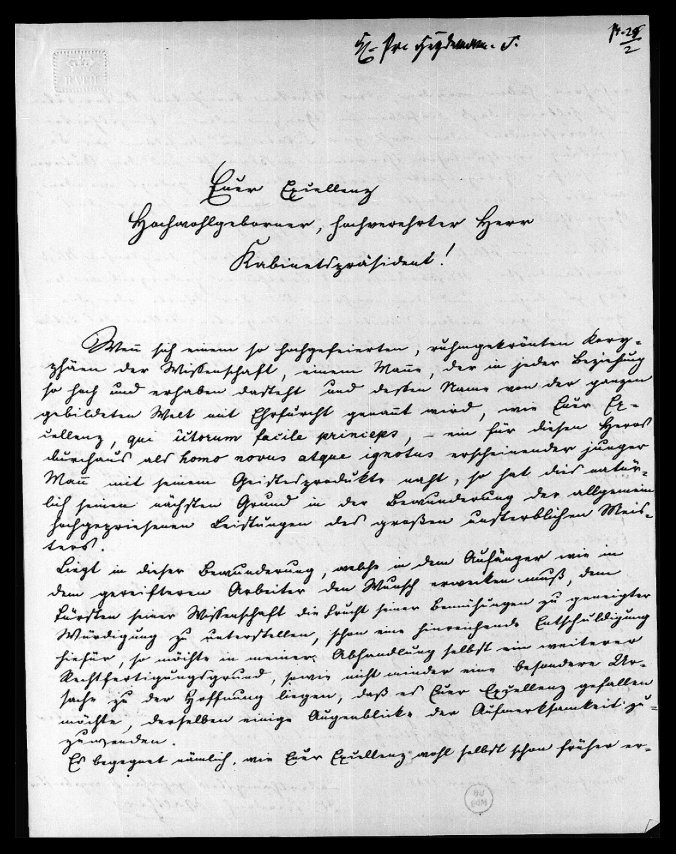 Euer Exzellenz
Hochwohlgeborner, hochverehrter Herr
Kabinetspräsident!
Weñ sich einem so hochgefeierten, ruhmgekrönten Kory-
phäen der Wissenschaft, einem Mañe, der in jeder Beziehung
so hoch und erhaben dasteht und dessen Name von der ganzen
gebildeten Welt mit Ehrfurcht genañt wird, wie Euer Ex-
cellenz, qui ictorum facile princeps, – ein für diesen Heros
durchaus als homo novus atque ignotus erscheinender junger
Mañ mit seinem Geistesprodukte naht, so hat dies natür-
lich seinen nächsten Grund in der Bewunderung der allgemein
hochgepriesenen Leistungen des großen unsterblichen Meis-
ters.
Liegt in dieser Bewunderung, welche in dem Anfänger wie in
dem gereifteren Arbeiter den Wunsch erwecken muß, dem
Fürsten seiner Wissenschaft die Frucht seiner Bemühungen zu geneigter
Würdigung zu unterstellen, schon eine hinreichende Entschuldigung
hiefür, so möchte in meiner Abhandlung selbst ein weiterer
Rechtfertigungsgrund, sowie nicht minder eine besondere Ur-
sache zu der Hoffnung liegen, daß es Euer Exzellenz gefallen
möchte, derselben einige Augenblicke der Aufmerksamkeit zu-
zuwenden.
Es begegnet nämlich, wie Euer Exzellenz wohl selbst schon früher er-